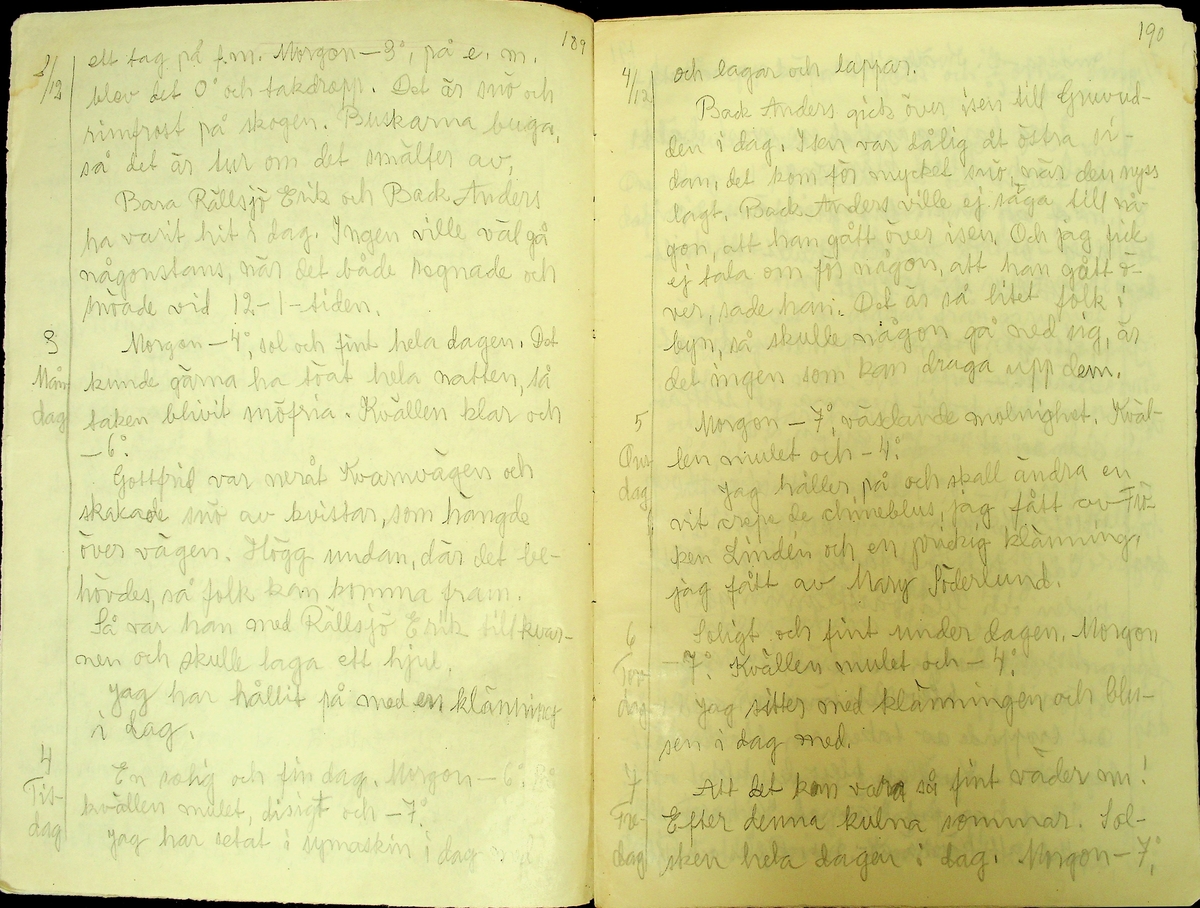 189
2/12 ett tag på f.m. Morgon -3°, på e. m.
blev det 0° och takdropp. Det är snö och
rimfrost på skogen. Buskarna buga,
så det är tur om det smälter av,
Bara Rällsjö Erik och Back Anders
ha varit hit i dag. Ingen ville väl gå
någonstans, när det både regnade och
snöade vid 12-1-tiden.
3 Morgon -4°, sol och fint hela dagen. Det
Mån- kunde gärna ha töat hela natten, så
dag taken blivit snöfria. Kvällen klar och
-6°.
Gottfrid var neråt Kvarnvägen och
skakade snö av kvistar, som hängde
över vägen. Högg undan, där det be-
hövdes, så folk kan komma fram.
Så var han med Rällsjö Erik till kvar-
nen och skulle laga ett hjul.
Jag har hållit på med en klänning
i dag.
4 En solig och fin dag. Morgon -6°. På
Tis- kvällen mulet, disigt och -7°.
dag Jag har setat i symaskin i dag
190
4/12 och lagar och lappar.
Back Anders gick över isen till Gruvud-
den i dag. Isen var dålig åt östra si-
dan, det kom för mycket snö, när den nyss
lagt. Back Anders ville ej säga till nå-
gon, att han gått över isen. Och jag fick
ej tala om för någon, att han gått ö-
ver, sade han. Det är så litet folk i
byn, så skulle någon gå ned sig, är
det ingen som kan draga upp dem.
5 Morgon -7°, växlande molnighet. Kväl-
Ons- len mulet och -4°.
dag Jag håller på och skall ändra en
vit crepe de chineblus, jag fått av Frö-
ken Lindén och en prickig klänning,
jag fått av Mary Söderlund.
6 Soligt och fint under dagen. Morgon
Tors- -7°. Kvällen mulet och -4°.
dag Jag sitter med klänningen och blu-
sen i dag med.
7 Att det kan vara så fint väder nu!
Fre- Efter denna kulna sommar. Sol-
dag sken hela dagen i dag. Morgon -7°,